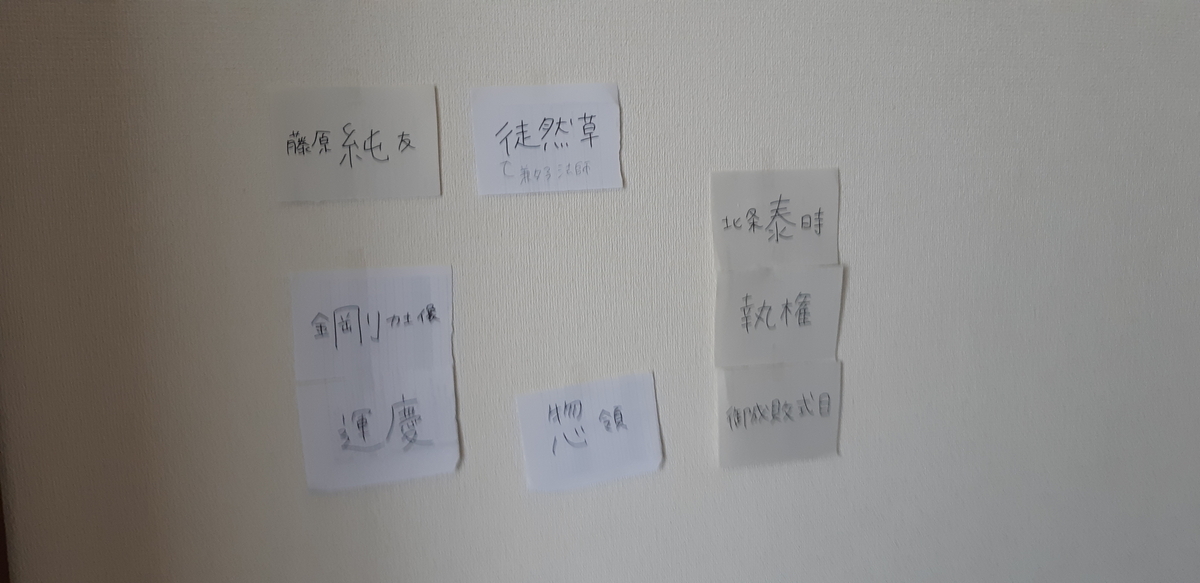 藤原純友
徒然草
て兼好法師
北条泰時
執権
御成敗式目
金剛力士像
運慶
惣領